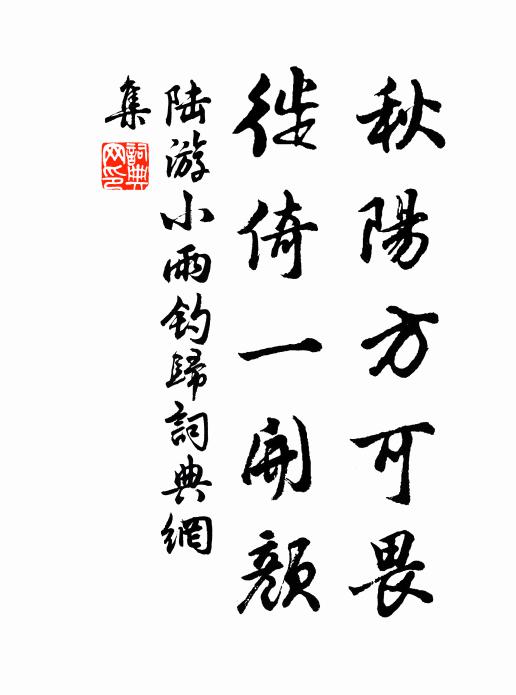 秋陽方可畏
徙倚一開顏
陆游小雨釣歸詞典網
集
詞典
网印